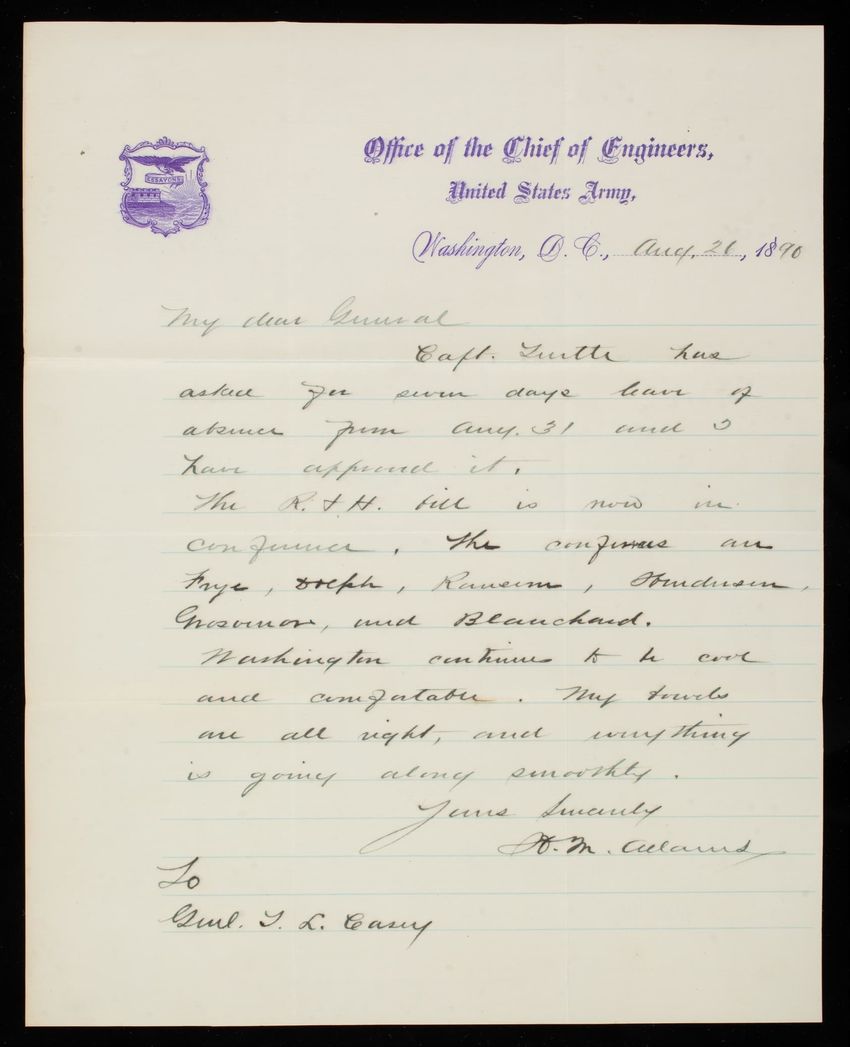 ESSAYONS
Office of the Chief of Engineers,
United States Army,
Washington, D. C., Aug. 26, 1890
My dear General
Capt. Turtle has
asked for seven days leave of
absence from Aug. 31 and I
have approved it.
The R. & H. bill is now in
conference. The conferees are
Frye, Dolph, Ransom, Henderson,
Grosvenor, and Blanchard.
Washington continues to be cool
and comfortable. My bowels
are all right, and everything
is going along smoothly.
Yours Sincerely
H. M. Adams
To
Genl. T. L. Casey